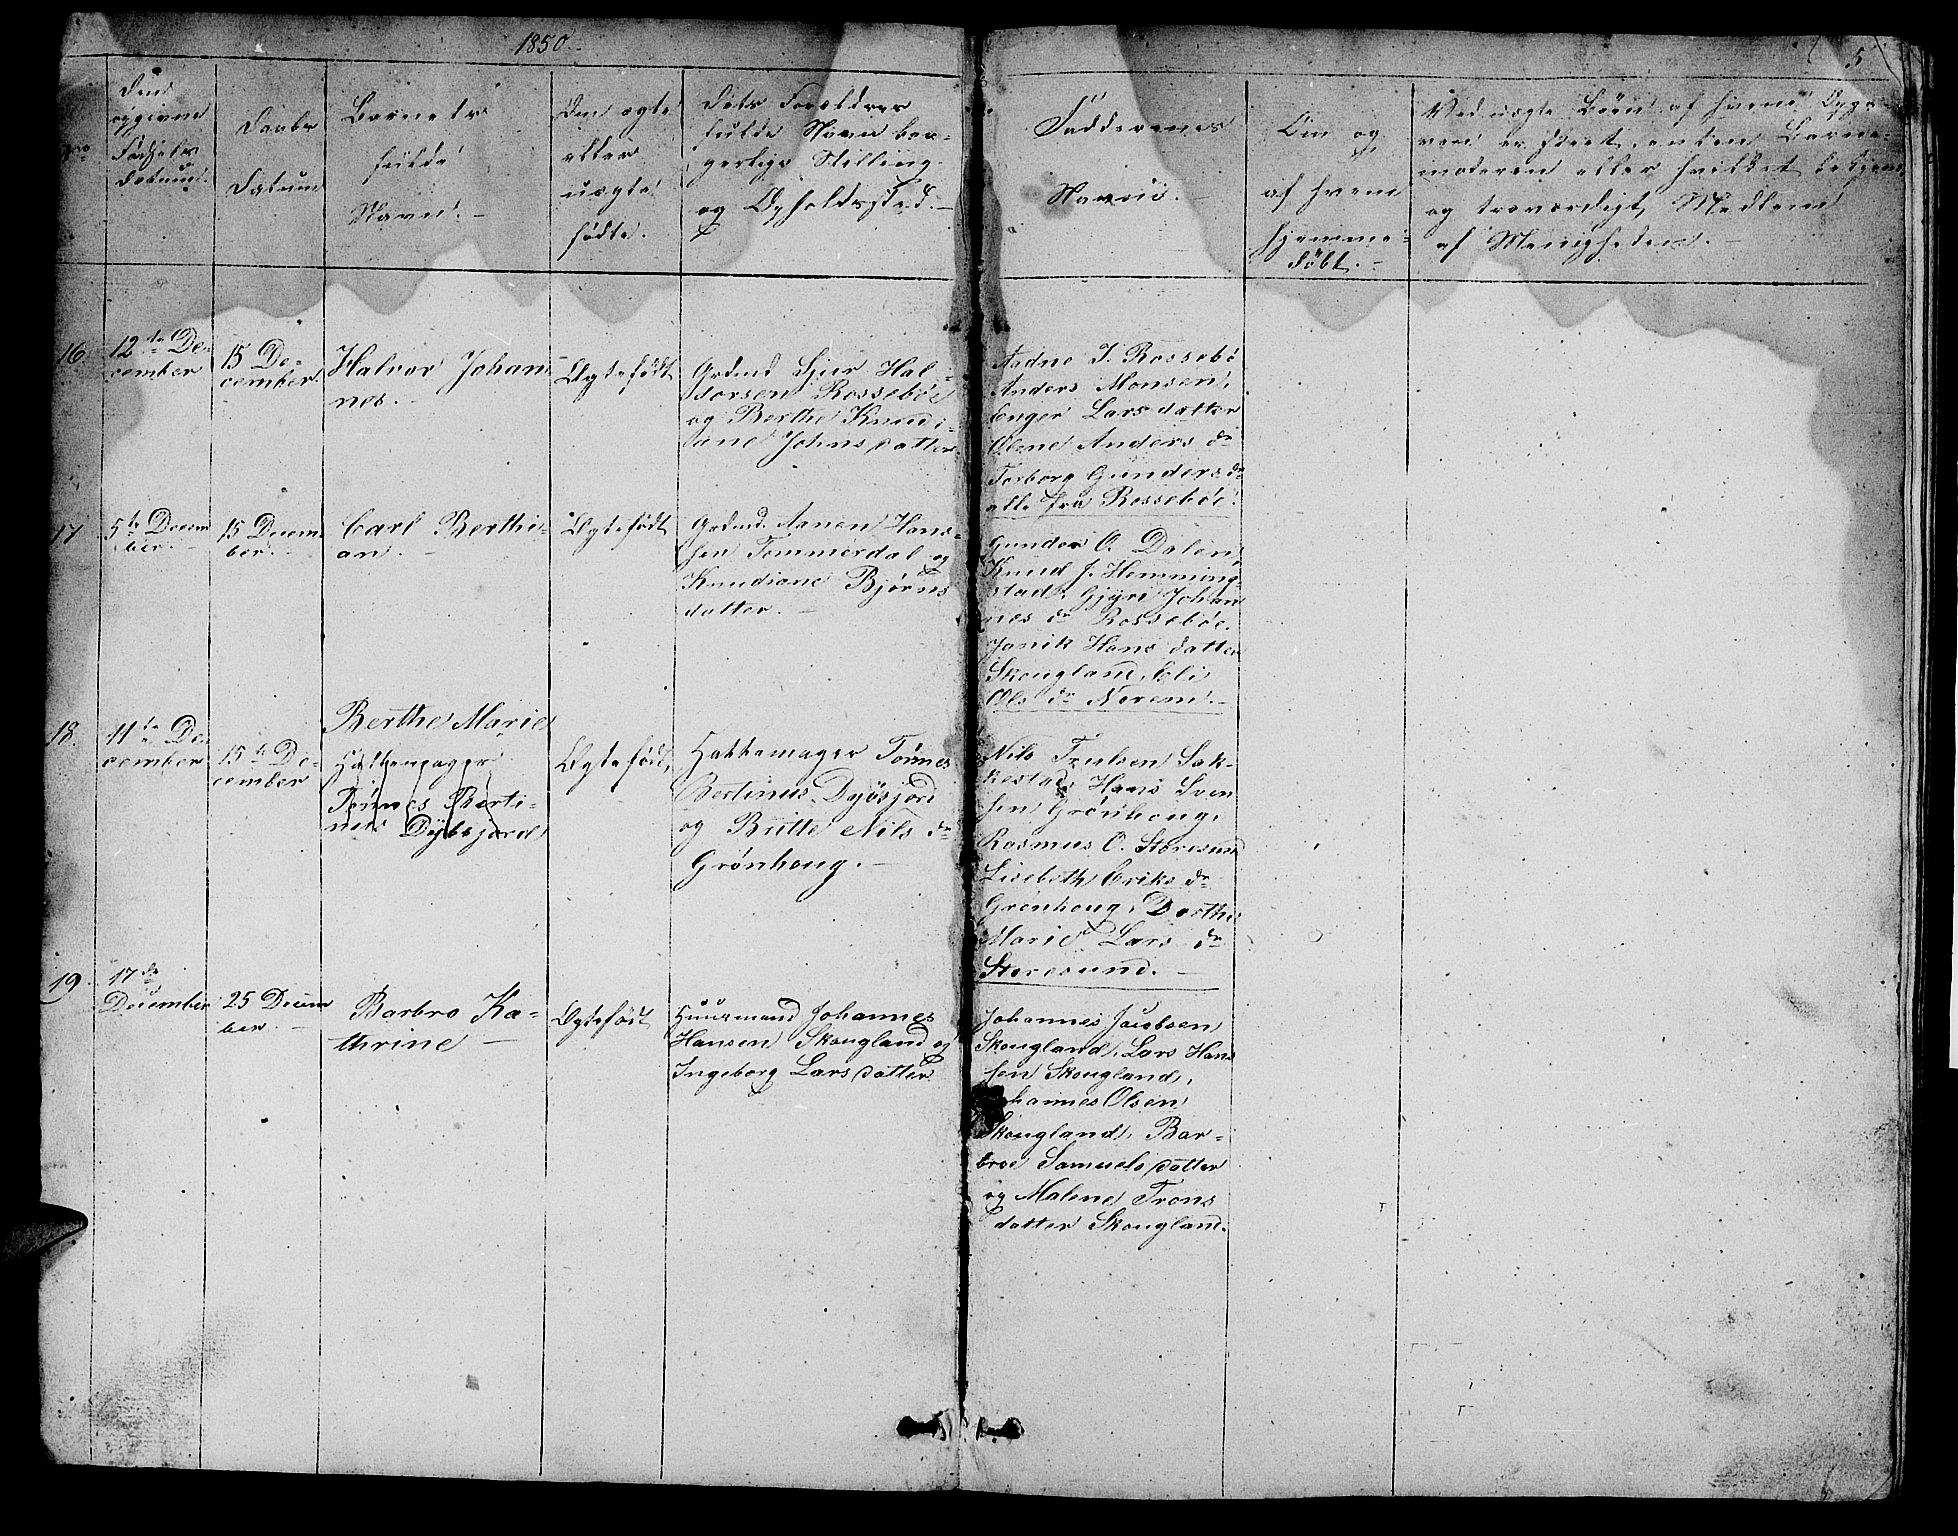 1850.
5
Den
opgivne
Fødsels
datum.
Daabs
Datum
Barnets
fulde
Navn. -
Om ægte
eller
uægte
født.
Dets Forældres
fulde Navn bor-
gerlige Stilling
og Opholdssted. -
Faddernes
Navne. -
Om og
af hvem
hjemme-
døbt. -
Ved uægte Børn af hvem Opgi-
ven er skeet, enten Barne-
moderen eller hvilket bekjendt
og troværdigt Medlem
af Menigheden. -
16
12te De-
cember
15 De-
cember.
Halvor Johan-
nes. -
Ægtefødt
Grdmd Sjur Hal-
vorsen Rossebøe
og Berthe Knudi-
ane Johnsdatter
Aadne J. Rossebø
Anders Monsen,
Enger Larsdatter
Olene Anders dr
Torborg Gunders dr
alle fra Rossebøe.
17
5te Decem
ber. -
15 Decem
ber. -
Carl Berthi-
an. -
Ægtefødt
Grdmd. Aanen Hans-
sen Tommerdal og
Knudiane Bjørns
datter. -
Gunder O. Dalen,
Knud J. Hemming-
stad, Gjyri Johan
nes dr Rossebøe.
Janik Hans datter
Skougland, Eli
Ols dr Norem. -
18.
11te De-
cember
15te De-
cember
Berthe Marie
Hakkemager
Tønnes Berti-
nus Dybsjord
Ægtefødt,
Hakkemager Tønnes
Bertinus Dybsjord
og Britte Nils dr
Grønhoug. -
Nils Troulsen Sak-
kestad, Hans Sven
sen Grønhoug,
Rasmus O. Storesund
Lisebeth Eriks dr
Grønhoug, Dorthe
Marie Lars dr
Storesund. -
19.
17de
December
25 Decem
ber. -
Barbro Ka-
thrine -
Ægtefødt
Huusmand Johannes
Hansen Skougland og
Ingeborg Larsdatter
Johannes Jacobsen
Skougland, Lars Hans
sen Skougland,
Johannes Olsen
Skougland, Bar-
broe Samuelsdatter
og Malene Trons
datter Skougland.